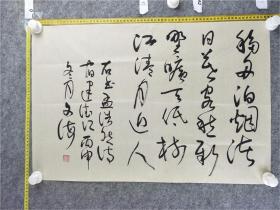 移舟泊烟渚
日暮客愁新
野曠天低树
江清月近人
右书孟浩然诗
宿建德江丙申
冬月文海